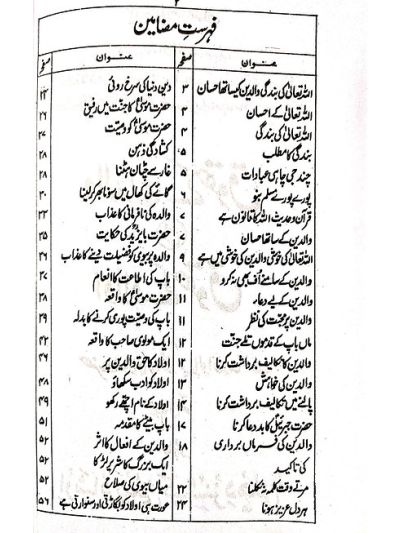 ۲
فہرستِ مضامین
عنوان صفحہ عنوان صفحہ
اللہ تعالیٰ کی بندگی والدین کیساتھ احسان ۳ دین و دنیا کی سرخ روئی ۲۴
اللہ تعالیٰ کے احسان ۴ حضرت موسیٰؑ کا جنت میں رفیق ۲۶
اللہ تعالیٰ کی بندگی ۴ حضرت موسیٰؑ کو وصیت ۲۷
بندگی کا مطلب ۵ کشادگی ذہن ۲۸
چند ہی چاہی عبادات ۵ غار سے چٹان ہٹنا ۲۸
پورے پورے مسلم بنو ۶ گائے کی کھال میں سونا بھر کر لینا ۳۰
قرآن و حدیث اللہ کا قانون ہے ۷ والدہ کی نافرمانی کا عذاب ۳۳
والدین کے ساتھ احسان ۷ حضرت بایزیدؒ کی حکایت ۳۵
اللہ تعالیٰ کی خوشی والدین کی خوشی میں ہے ۹ والدہ پر بیوی کو فضیلت دینے کا عذاب ۳۶
والدین کے سامنے اُف بھی نہ کرو ۱۰ باپ کی اطاعت کا انعام ۳۷
والدین کے لیے دعاء ۱۱ حضرت موسیٰؑ کا واقعہ ۳۸
والدین پر محبت کی نظر ۱۱ باپ کی وصیت پوری کرنے کا بدلہ ۳۹
ماں باپ کے قدموں تلے جنت ۱۲ ایک مولوی صاحب کا واقعہ ۴۲
والدین کا تکالیف برداشت کرنا ۱۲ اولاد کا حق والدین پر ۴۶
والدین کی خواہش ۱۳ اولاد کو ادب سکھاؤ ۴۸
پالنے میں تکالیف برداشت کرنا ۱۴ اولاد کے نام اچھے رکھو ۴۹
حضرت جبرئیلؑ کا بددعا کرنا ۱۷ باپ بیٹے کا مقدمہ ۵۱
والدین کی فرماں برداری ۱۸ والدین کے افعال کا اثر ۵۲
کی تاکید ایک بزرگ کا شریر لڑکا ۵۲
مرتے وقت کلمہ نہ نکلنا ۲۲ میاں بیوی کی صلاح ۵۲
ہر دل عزیز ہونا ۲۳ عورت ہی اولاد کو بگاڑتی اور سنوارتی ہے ۵۶